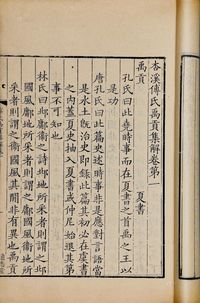 杏溪傅氏禹貢集解卷第一
夏書
禹貢
孔氏曰此堯時事而在夏書之首禹之王以
是功
唐孔氏曰此篇史述時事非是應對言語當
是水土既治史即錄此篇其初必在虞書
之內蓋夏史抽入夏書或仲尼始退其第
事不可知也
林氏曰邶鄘衛之詩邶地所采者則謂之邶
國風鄘地所采者則謂之鄘國風衛地所
采者則謂之衛國風其間非有異也禹貢